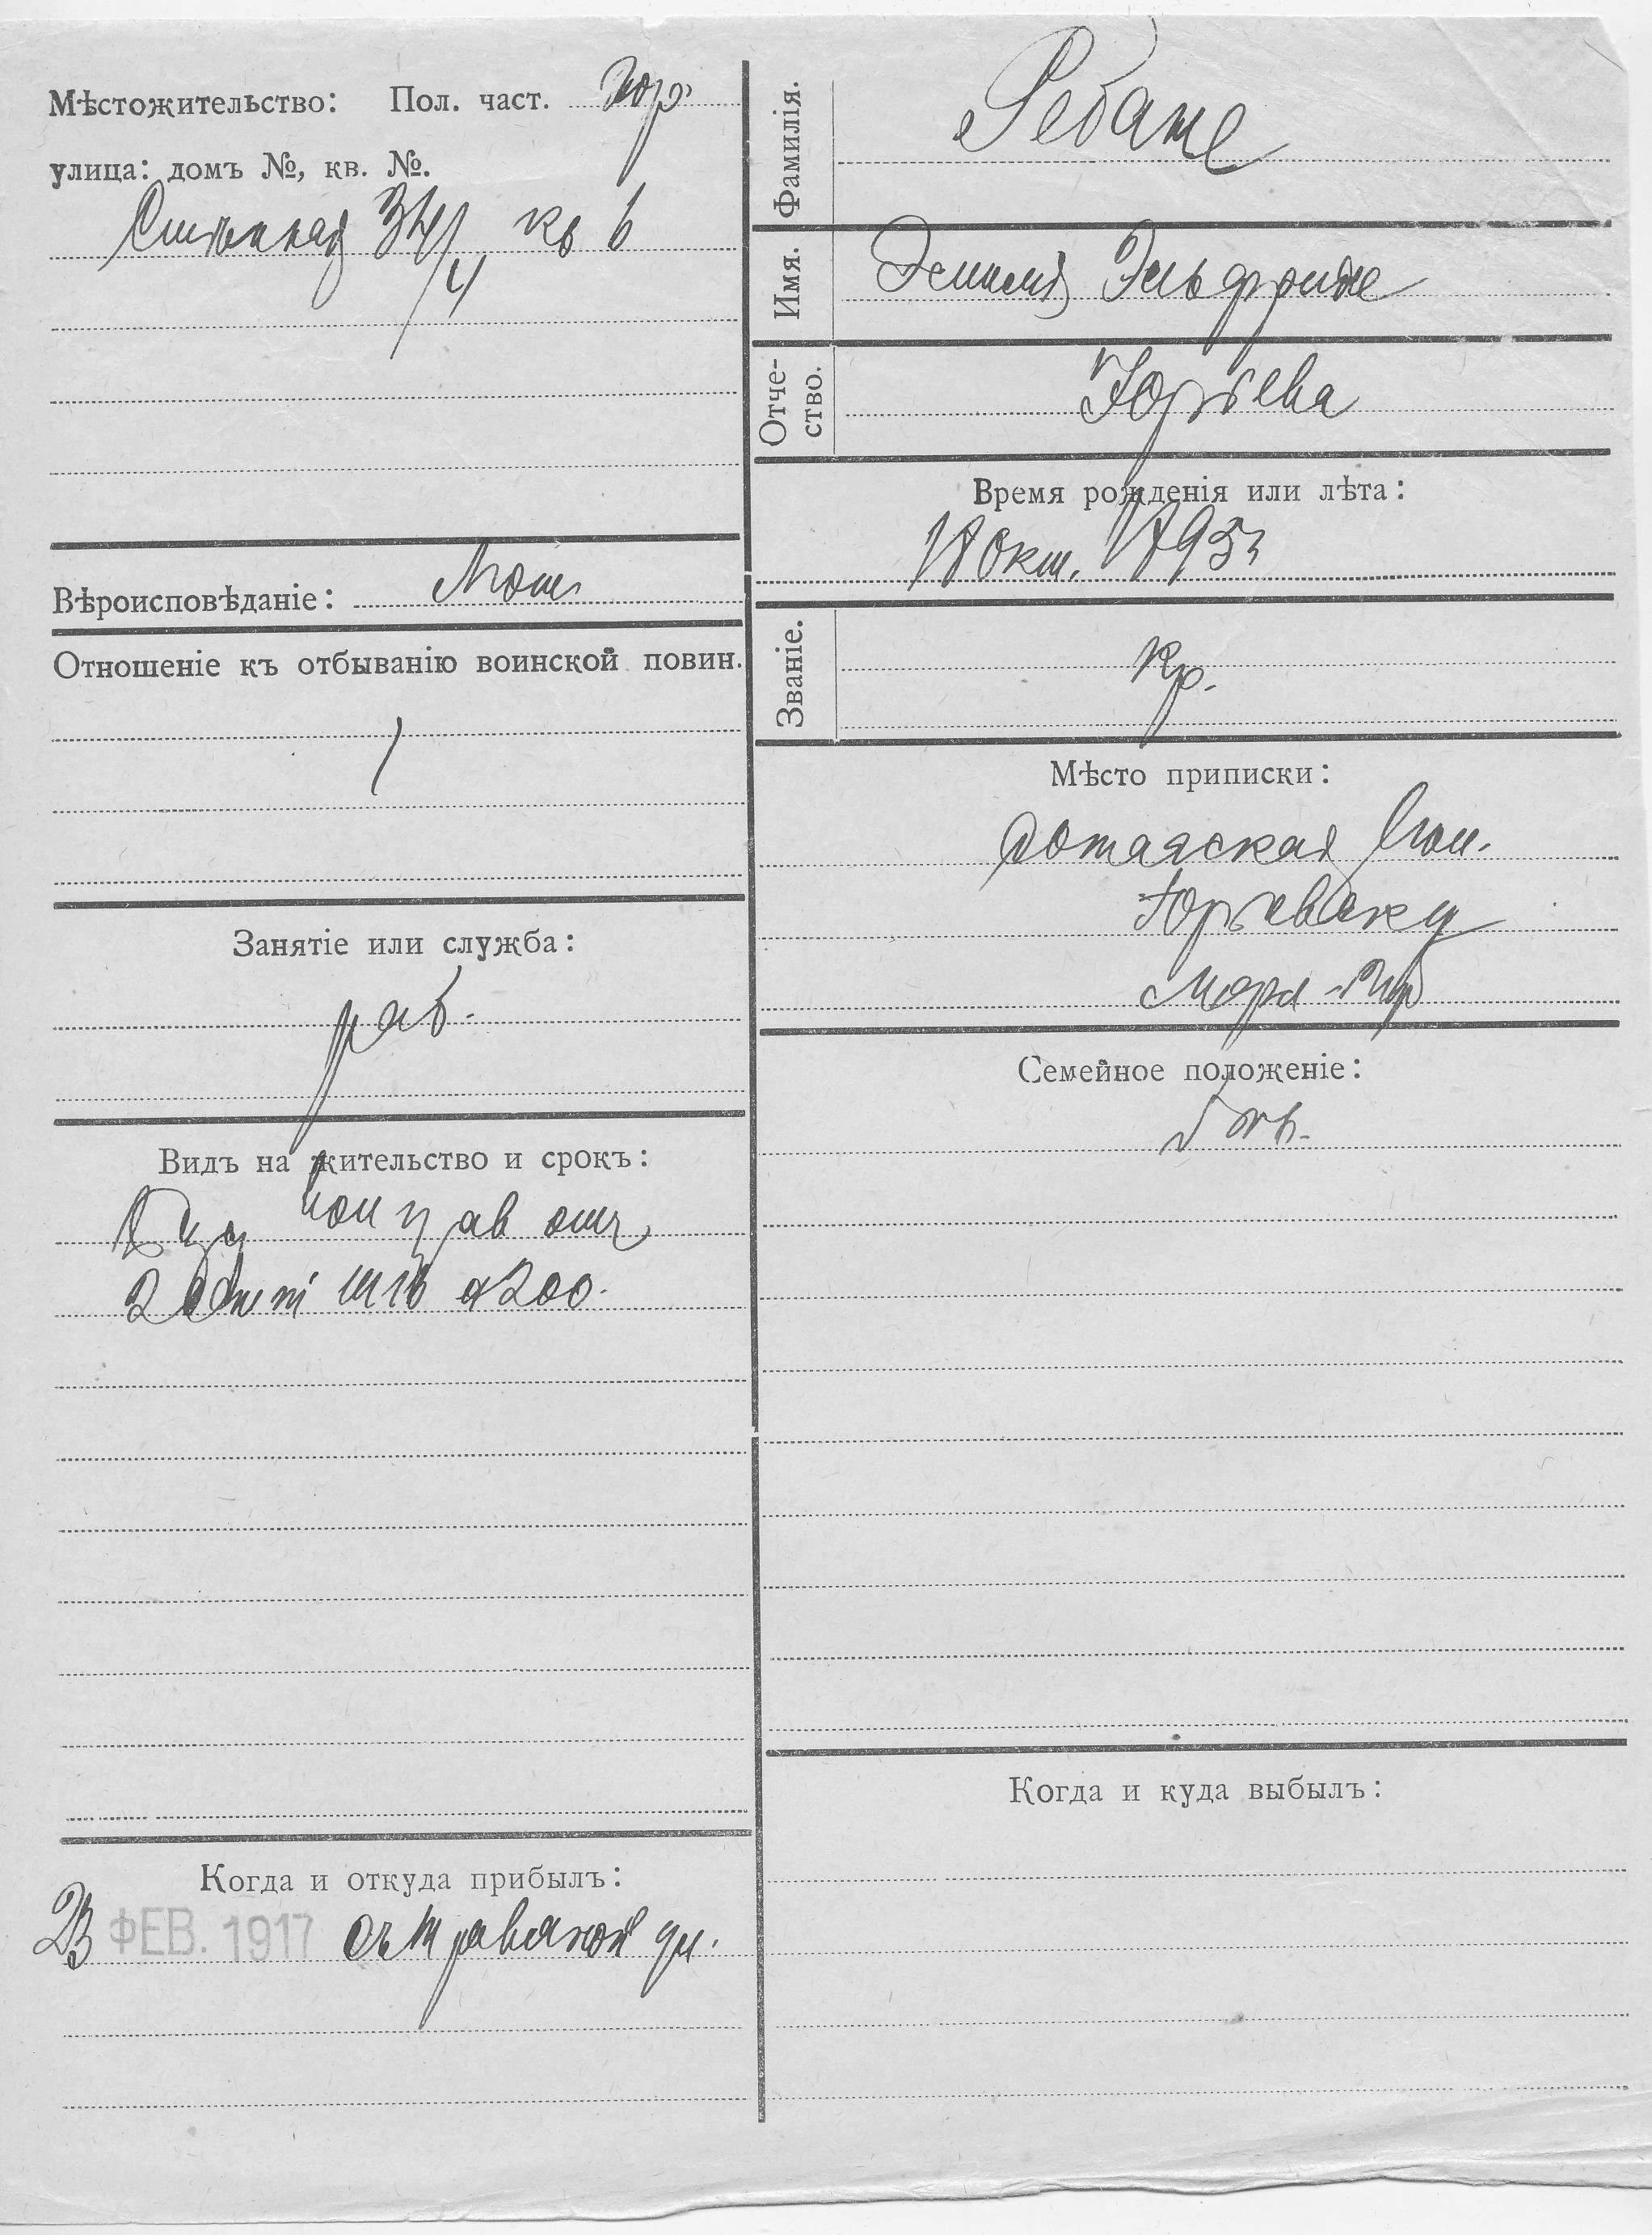 Мѣстожительство: Пол. част. Нар.
улица: домъ №, кв. №.
34/4 кв 6
Вѣроисповѣданіе: Лют.
Отношеніе къ отбыванію воинской повин.
Занятіе или служба:
раб.
Видъ на жительство и срокъ:
№ 200.
Когда и откуда прибылъ:
23 ФЕВ. 1917 съ Травяной ул.
Фамилія. Ребане
Имя. Эмилія Эльфриде
Отчество. Юрьева
Время рожденія или лѣта:
18 Окт. 1895 г
Званіе.
кр.
Мѣсто приписки:
вол.
Юрьевскаго у
Лифл. губ
Семейное положеніе:
дѣв.
Когда и куда выбылъ: